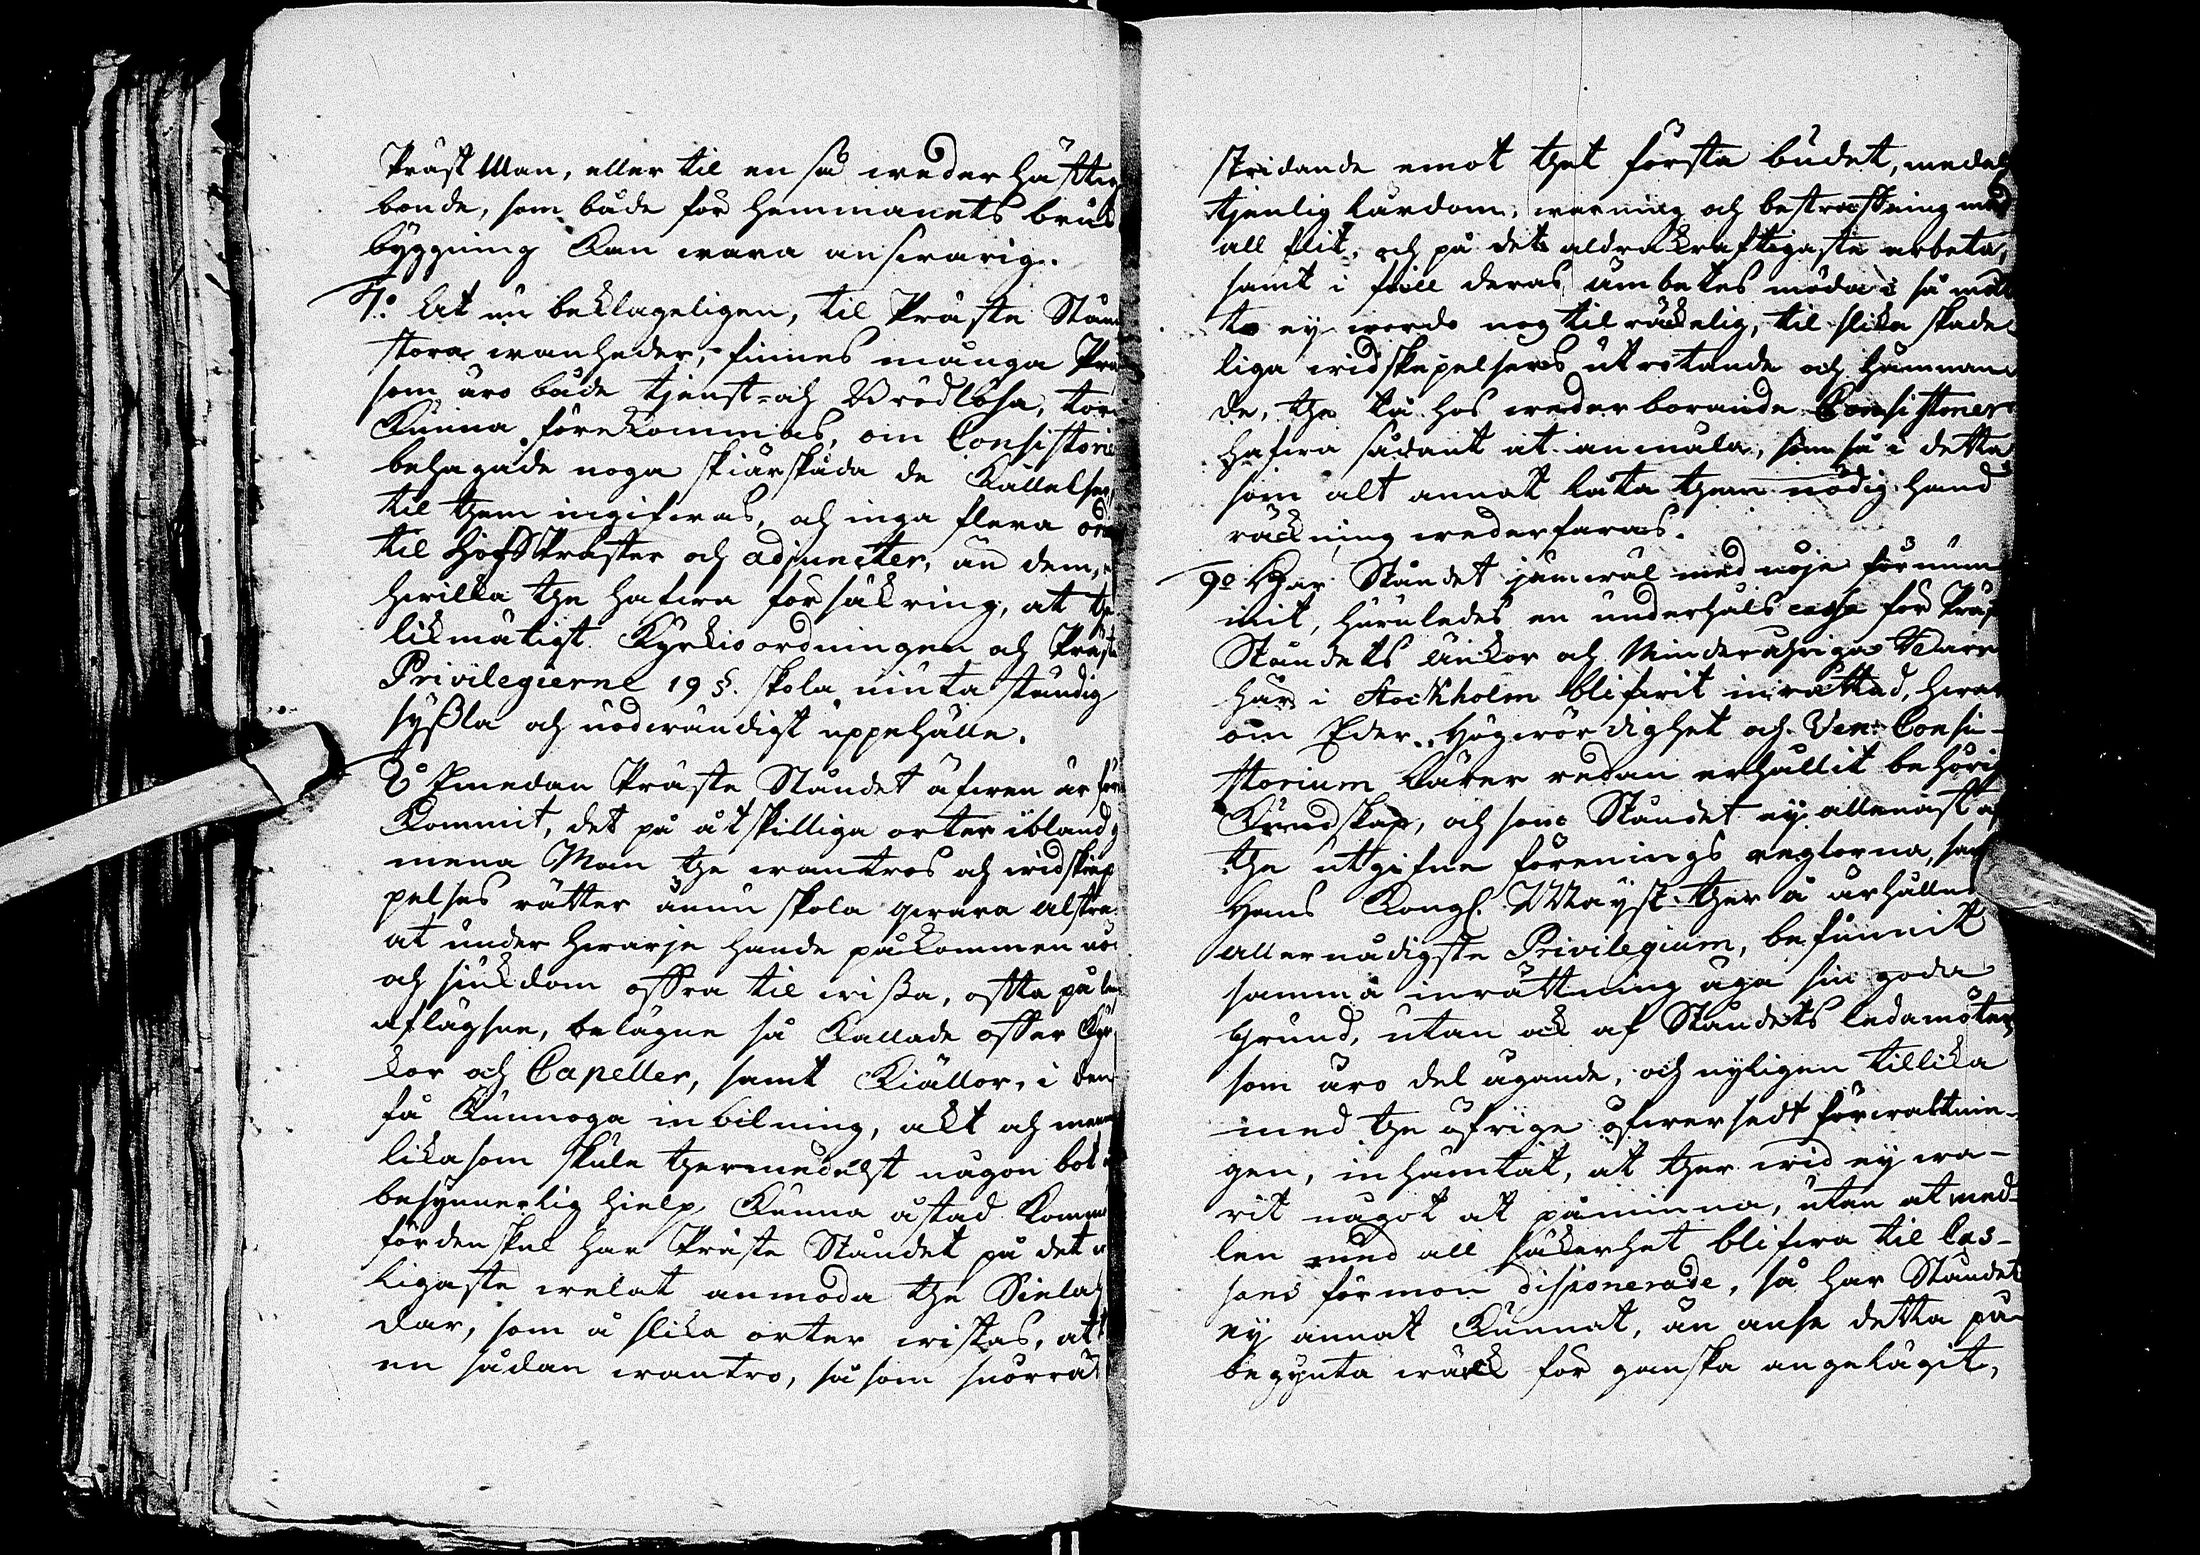 Präst Man, eller til en så wederhäftig
bonde, som både för hemmanets bruk
byggning kan wara answarig.
7:o At nu beklageligen, til Präste Stån
stora wanheder, finnes många Prä
som äro både tjenst- och Brödlösa, tor
kunna förekommas, om Consistorie
behagade noga skiärskåda de Kallelser
til them ingifwas, och inga flera or
til Hofs Präster och adjuncter, än dem,
hwilka the hafwa försäkring, at the
likmätigt Kyrkioordningen och Präste
Privilegierne 19 §. skola niuta ständig
sysßla och nödwändigt uppehälle.
8:o Emedan Präste Ståndet äfwen är före
kommit, det på åtskilliga orter ibland g
mena Man the wantros och widskiep
pelses rötter ännu skola qwara alstra
at under hwarje hande påkommen nöd
och siukdom offra til wißa, offta på lan
aflägsne, belägne så kallade offer Kyr
kor och Capeller, samt Kiällor, i den
få kunnoga inbilning, akt och men
lika som skule thermedelst någon bot
besynnerlig hielp kunna åstad komm
fördenskul har Präste Ståndet på det
ligaste welat anmoda the Siälah
dar, som å slika orter wistas, att
en sådan wantro, så som snörrät
stridande emot thet första budet, medelst
tjenlig lärdom, warning och bestraffning med
all flit, och på det aldrakraftigaste arbeta,
samt i fall deras ämbetes möda i så måt
to ey wordo nog tilräckelig, til slika skade
liga widskepelsers utrotande och hämman
de, the tå hos wederbörande Consistorier
hafwa sådant at anmäla, som så i detta
som alt annat låta them nödig hand
räckning wederfaras.
9:o Har Ståndet jämwäl med nöje förnum
mit, huruledes en underhåls cassa för Präst
Ståndets Änkor och Minderåhriga Barn
här i Stockholm blifwit inrättad, hwar
om Eder Högwördighet och Ven: Consi-
storium lärer redan erhållit behörig
Kundskap, och som Ståndet ey allenast af
the utgifne förenings reglorna, samt
Hans Kongl. Mayst. ther å ärhållne
allernådigste Privilegium, befunnit
samma inrättning äga sin goda
grund, utan ock af Ståndets ledamöter,
som äro del ägande, och nyligen tillika
med the öfrige öfwersedt förwaltnin-
gen, inhämtat, at ther wid ey wa-
rit något at påminna, utan at med-
len med all säkerhet blifwa til Cas-
sans förmon disponerade, så har Ståndet
ey annat kunnat, än anse detta på
begynta wärck för ganska angelägit,